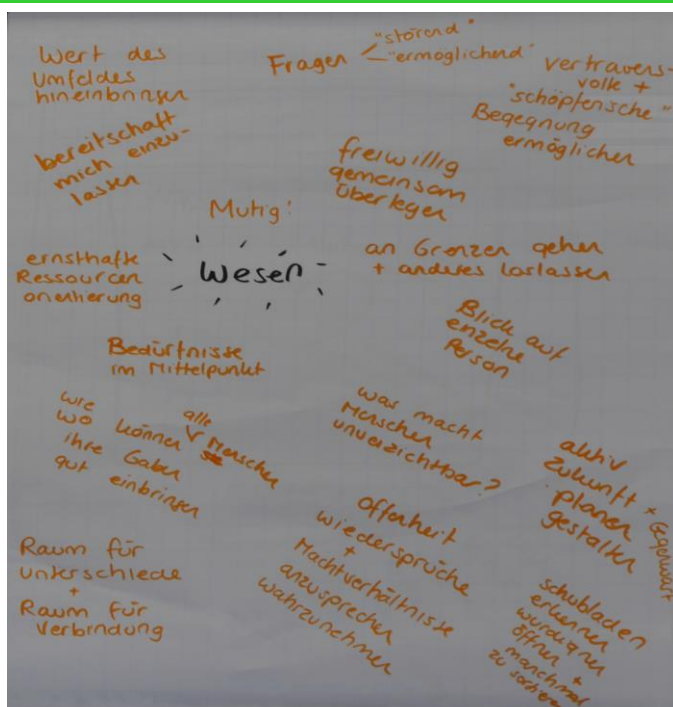 Wert des
Umfeldes
hineinbringen
Fragen
"störend"
"ermöglichend"
vertrauens-
volle +
"schöpferische"
Begegnung
ermöglichen
bereitschaft
mich einzu-
lassen
freiwillig
gemeinsam
überlegen
Mutig!
Wesen
ernsthafte
Ressourcen
orientierung
an Grenzen gehen
+ anderes loslassen
Blick auf
einzelne
Person
Bedürfnisse
im Mittelpunkt
wie
wo können alle Menschen
ihre Gaben
gut einbringen
was macht
Menschen
unverzichtbar?
aktiv
Zukunft + Gegenwart
planen
gestalten
Offenheit
wiedersprüche
+
Machtverhältnisse
anzusprechen
wahrzunehmen
Raum für
unterschiede
+
Raum für
Verbindung
schubladen
erkennen
würdigen
öffnen +
manchmal
zu